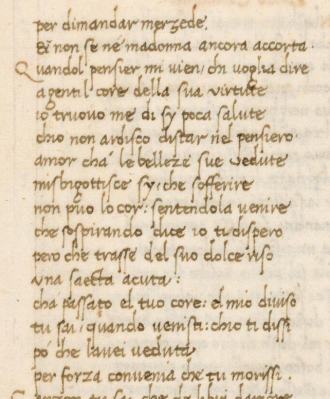 per dimandar merzede.
Et non se ne madonna ancora accorta.
Quandol pensier mi vien, chi voglia dire
a gentil core della sua virtute
io truovo me di sy poca salute
chio non ardisco distar nel pensiero.
amor cha le belleze sue vedute
misbigottisce sy: che sofferire
non puo lo cor: sentendola venire
che sospirando dice io ti dispero
pero che trasse del suo dolce riso
vna saetta acuta:
cha passato el tuo core: el mio diviso
tu sai, quando venisti: chio ti dissi
po che lavei veduta
per forza convenia che tu morissi.
tu sai che